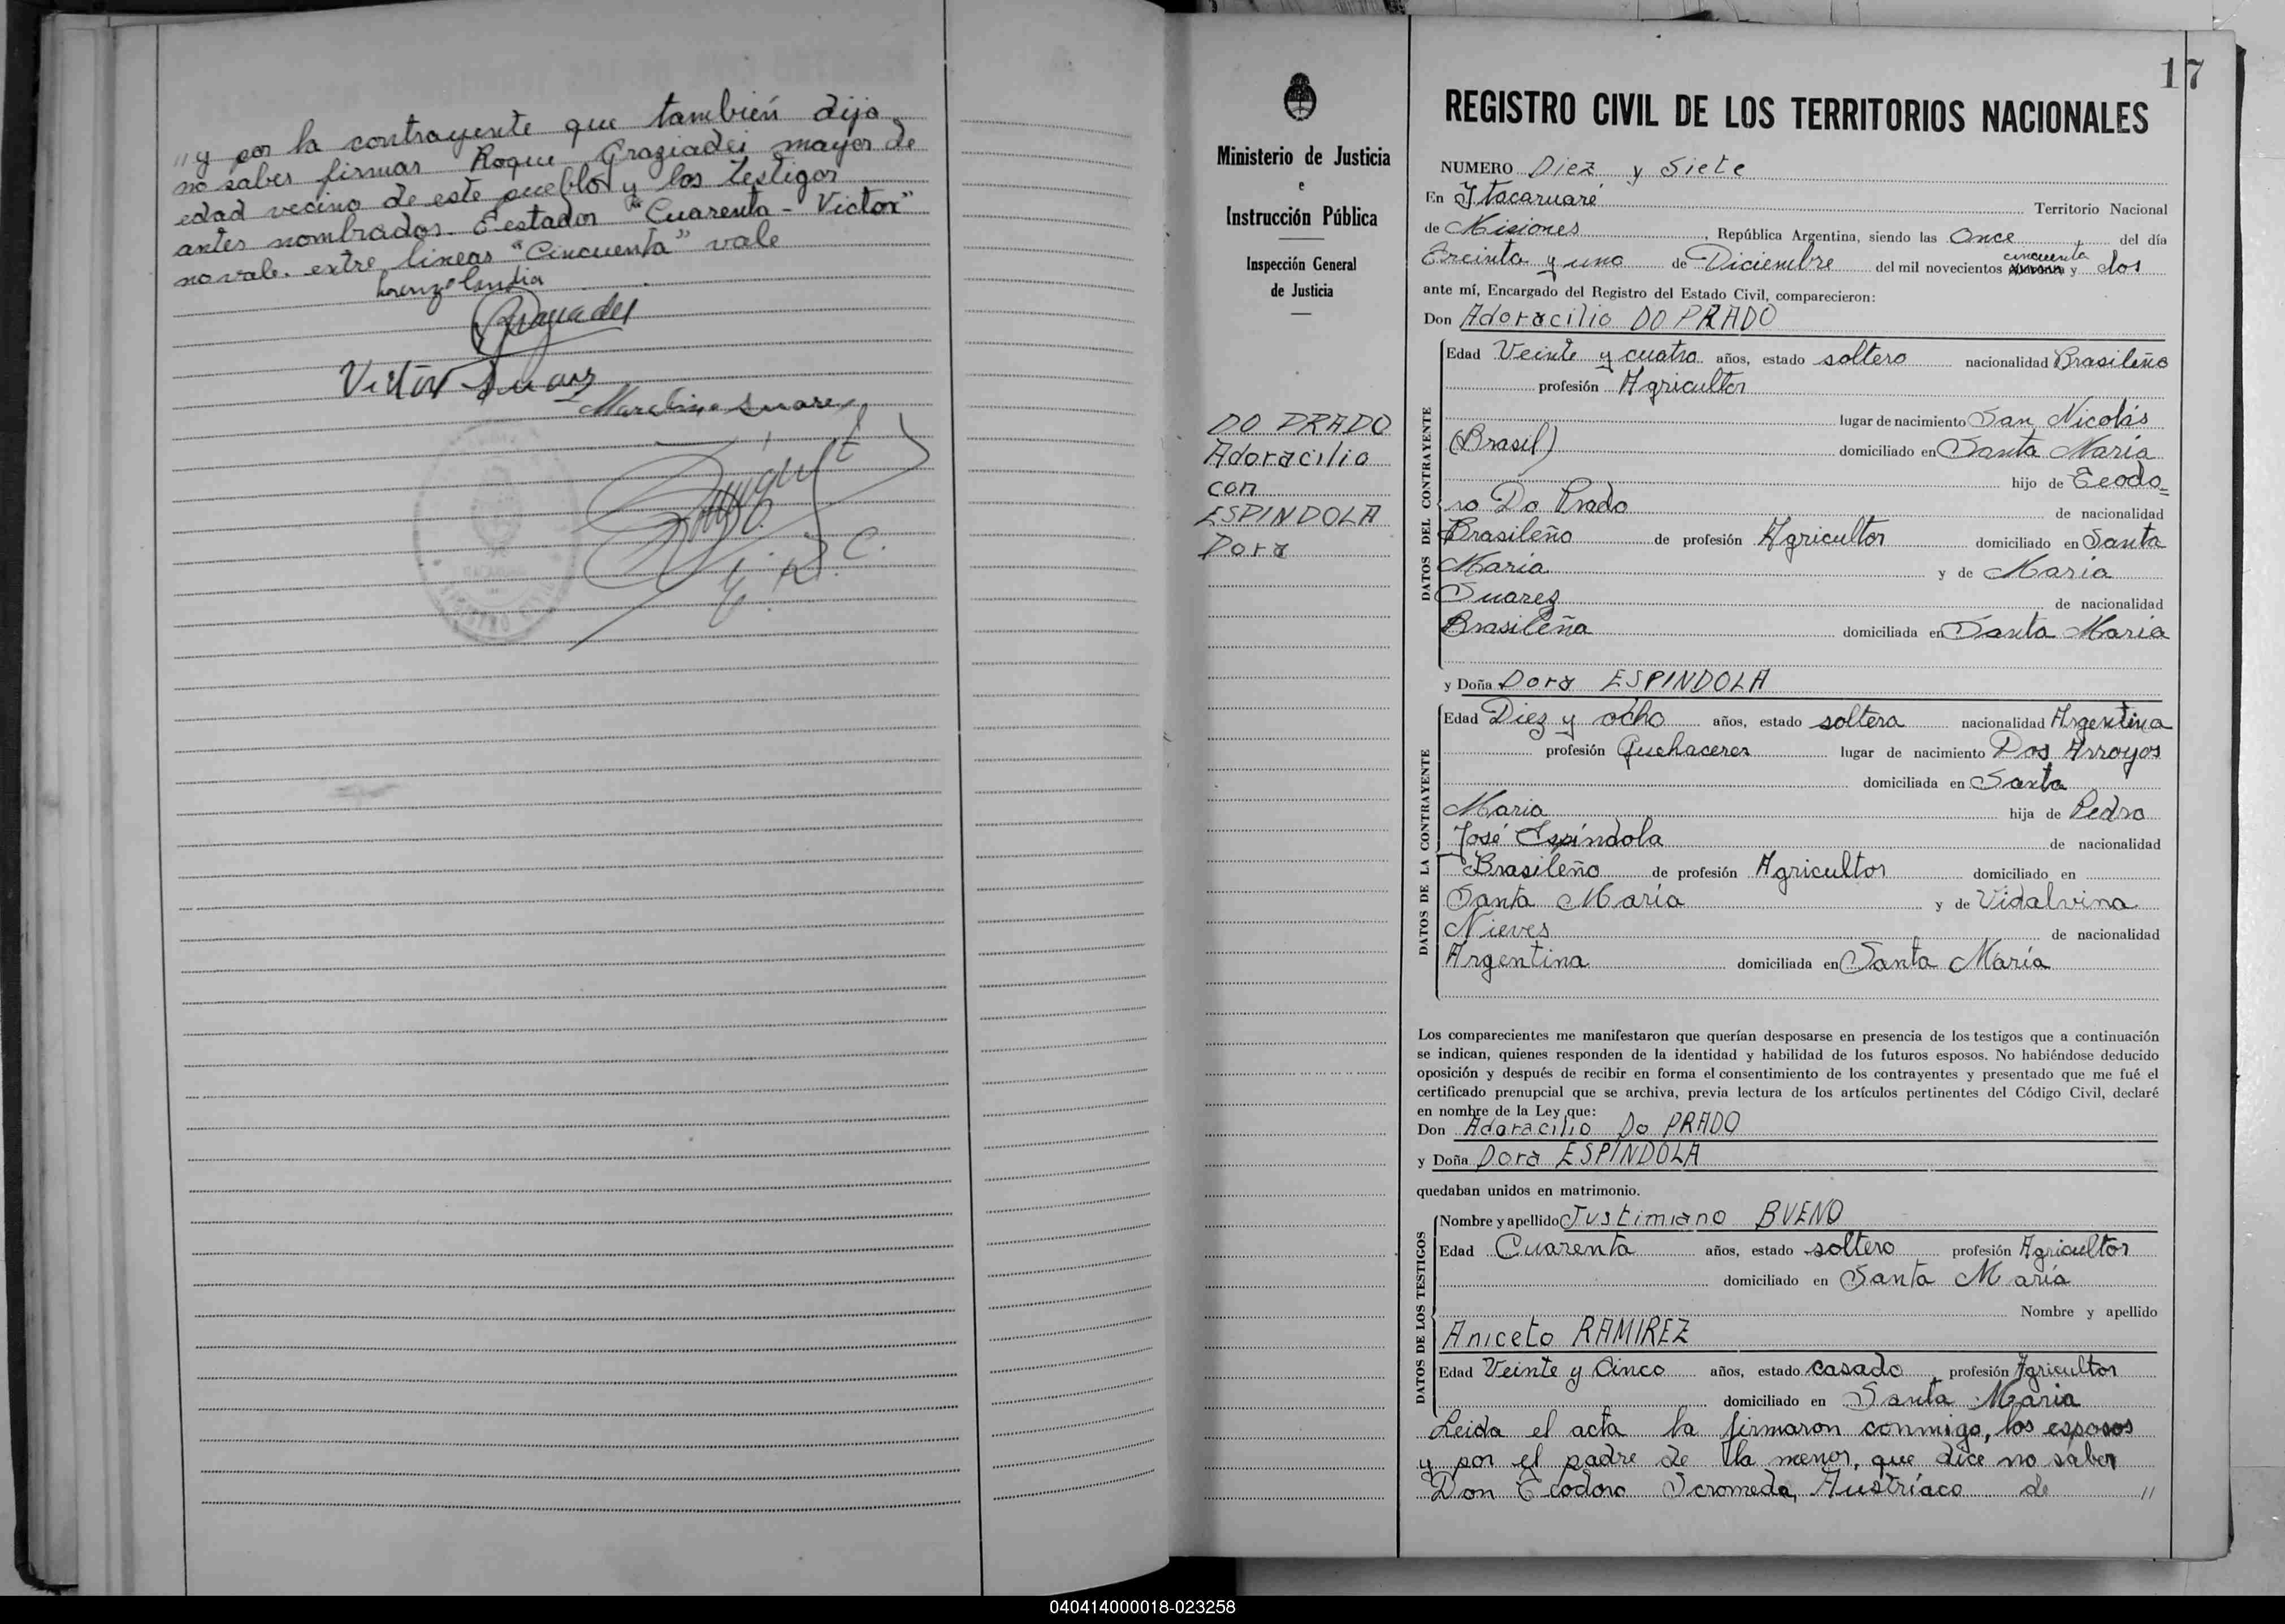 "y por la contrayente que también dijo
no saber firmar Roque Graziadei mayor de
edad vecino de este pueblo y los testigos
antes nombrados. Testador "Cuarenta - Victor"
no vale. entre lineas "Cincuenta" vale
Victor Suarez
Marcelino Suarez
E. R. C.
17
Ministerio de Justicia
e
Instrucción Pública
Inspección General
de Justicia
DO PRADO
Adoracilio
con
ESPINDOLA
Dora
REGISTRO CIVIL DE LOS TERRITORIOS NACIONALES
NUMERO Diez y Siete
En Itacaruaré Territorio Nacional
de Misiones, República Argentina, siendo las Once del día
Treinta y uno de Diciembre del mil novecientos cincuenta y dos
ante mí, Encargado del Registro del Estado Civil, comparecieron:
Don Adoracilio DO PRADO
DATOS DEL CONTRAYENTE
Edad Veinte y cuatro años, estado soltero nacionalidad Brasileño
profesión Agricultor
lugar de nacimiento San Nicolás
(Brasil) domiciliado en Santa María
hijo de Teodo=
ro Do Prado de nacionalidad
Brasileño de profesión Agricultor domiciliado en Santa
María y de María
Suarez de nacionalidad
Brasileña domiciliada en Santa María
y Doña Dora ESPINDOLA
DATOS DE LA CONTRAYENTE
Edad Diez y ocho años, estado soltera nacionalidad Argentina
profesión Quehaceres lugar de nacimiento Dos Arroyos
domiciliada en Santa
María hija de Pedro
José Espíndola de nacionalidad
Brasileño de profesión Agricultor domiciliado en
Santa María y de Vidalvina
Nieves de nacionalidad
Argentina domiciliada en Santa María
Los comparecientes me manifestaron que querían desposarse en presencia de los testigos que a continuación
se indican, quienes responden de la identidad y habilidad de los futuros esposos. No habiéndose deducido
oposición y después de recibir en forma el consentimiento de los contrayentes y presentado que me fué el
certificado prenupcial que se archiva, previa lectura de los artículos pertinentes del Código Civil, declaré
en nombre de la Ley que:
Don Adoracilio Do PRADO
y Doña Dora ESPÍNDOLA
quedaban unidos en matrimonio.
DATOS DE LOS TESTIGOS
Nombre y apellido Justimiano BUENO
Edad Cuarenta años, estado soltero profesión Agricultor
domiciliado en Santa María
Nombre y apellido
Aniceto RAMIREZ
Edad Veinte y Cinco años, estado casado, profesión Agricultor
domiciliado en Santa María
Leida el acta la firmaron conmigo, los esposos
y por el padre de la menor, que dice no saber
Don Teodoro Scromeda, Austríaco de "
040414000018-023258